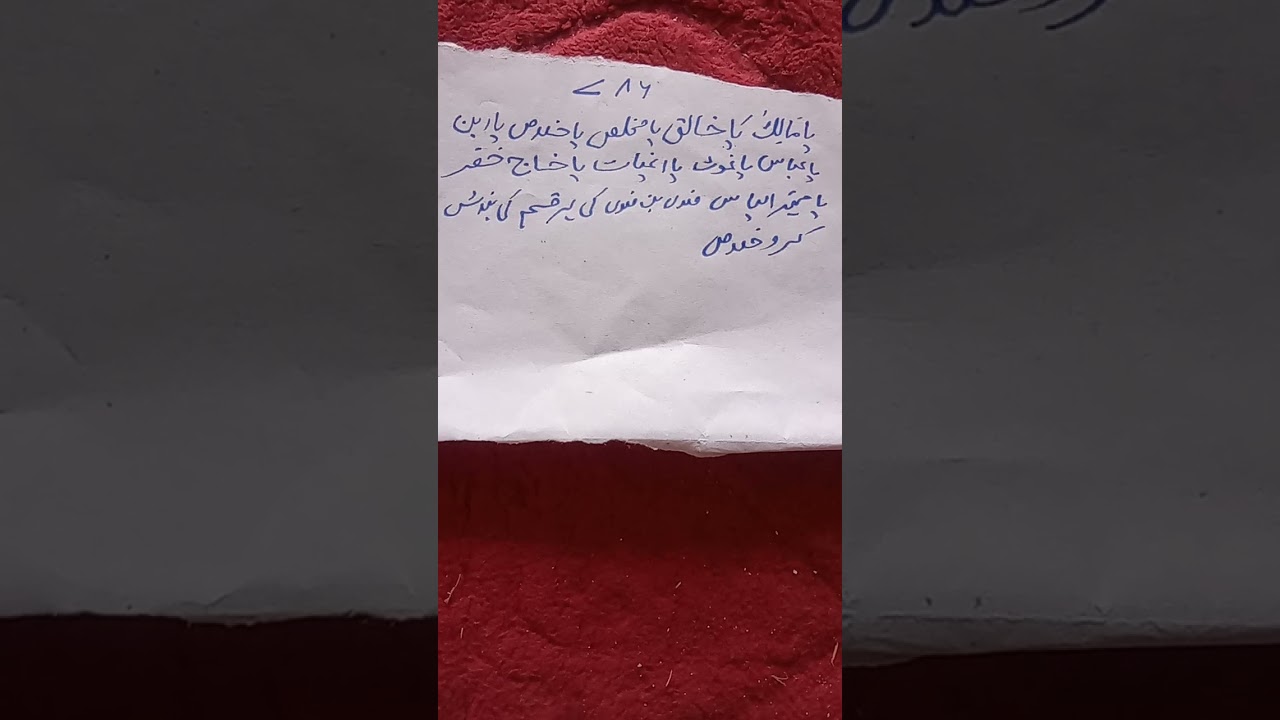 ۷۸۶
یا مَالِکُ یَا خالق یا مخلص یا خلاص یا ربن
یا عباس یا غوث یا اغیاث یا خاج خضر
یا الیاس فلاں بن فلاں کی ہر قسم کی بندش
کرو خلاص